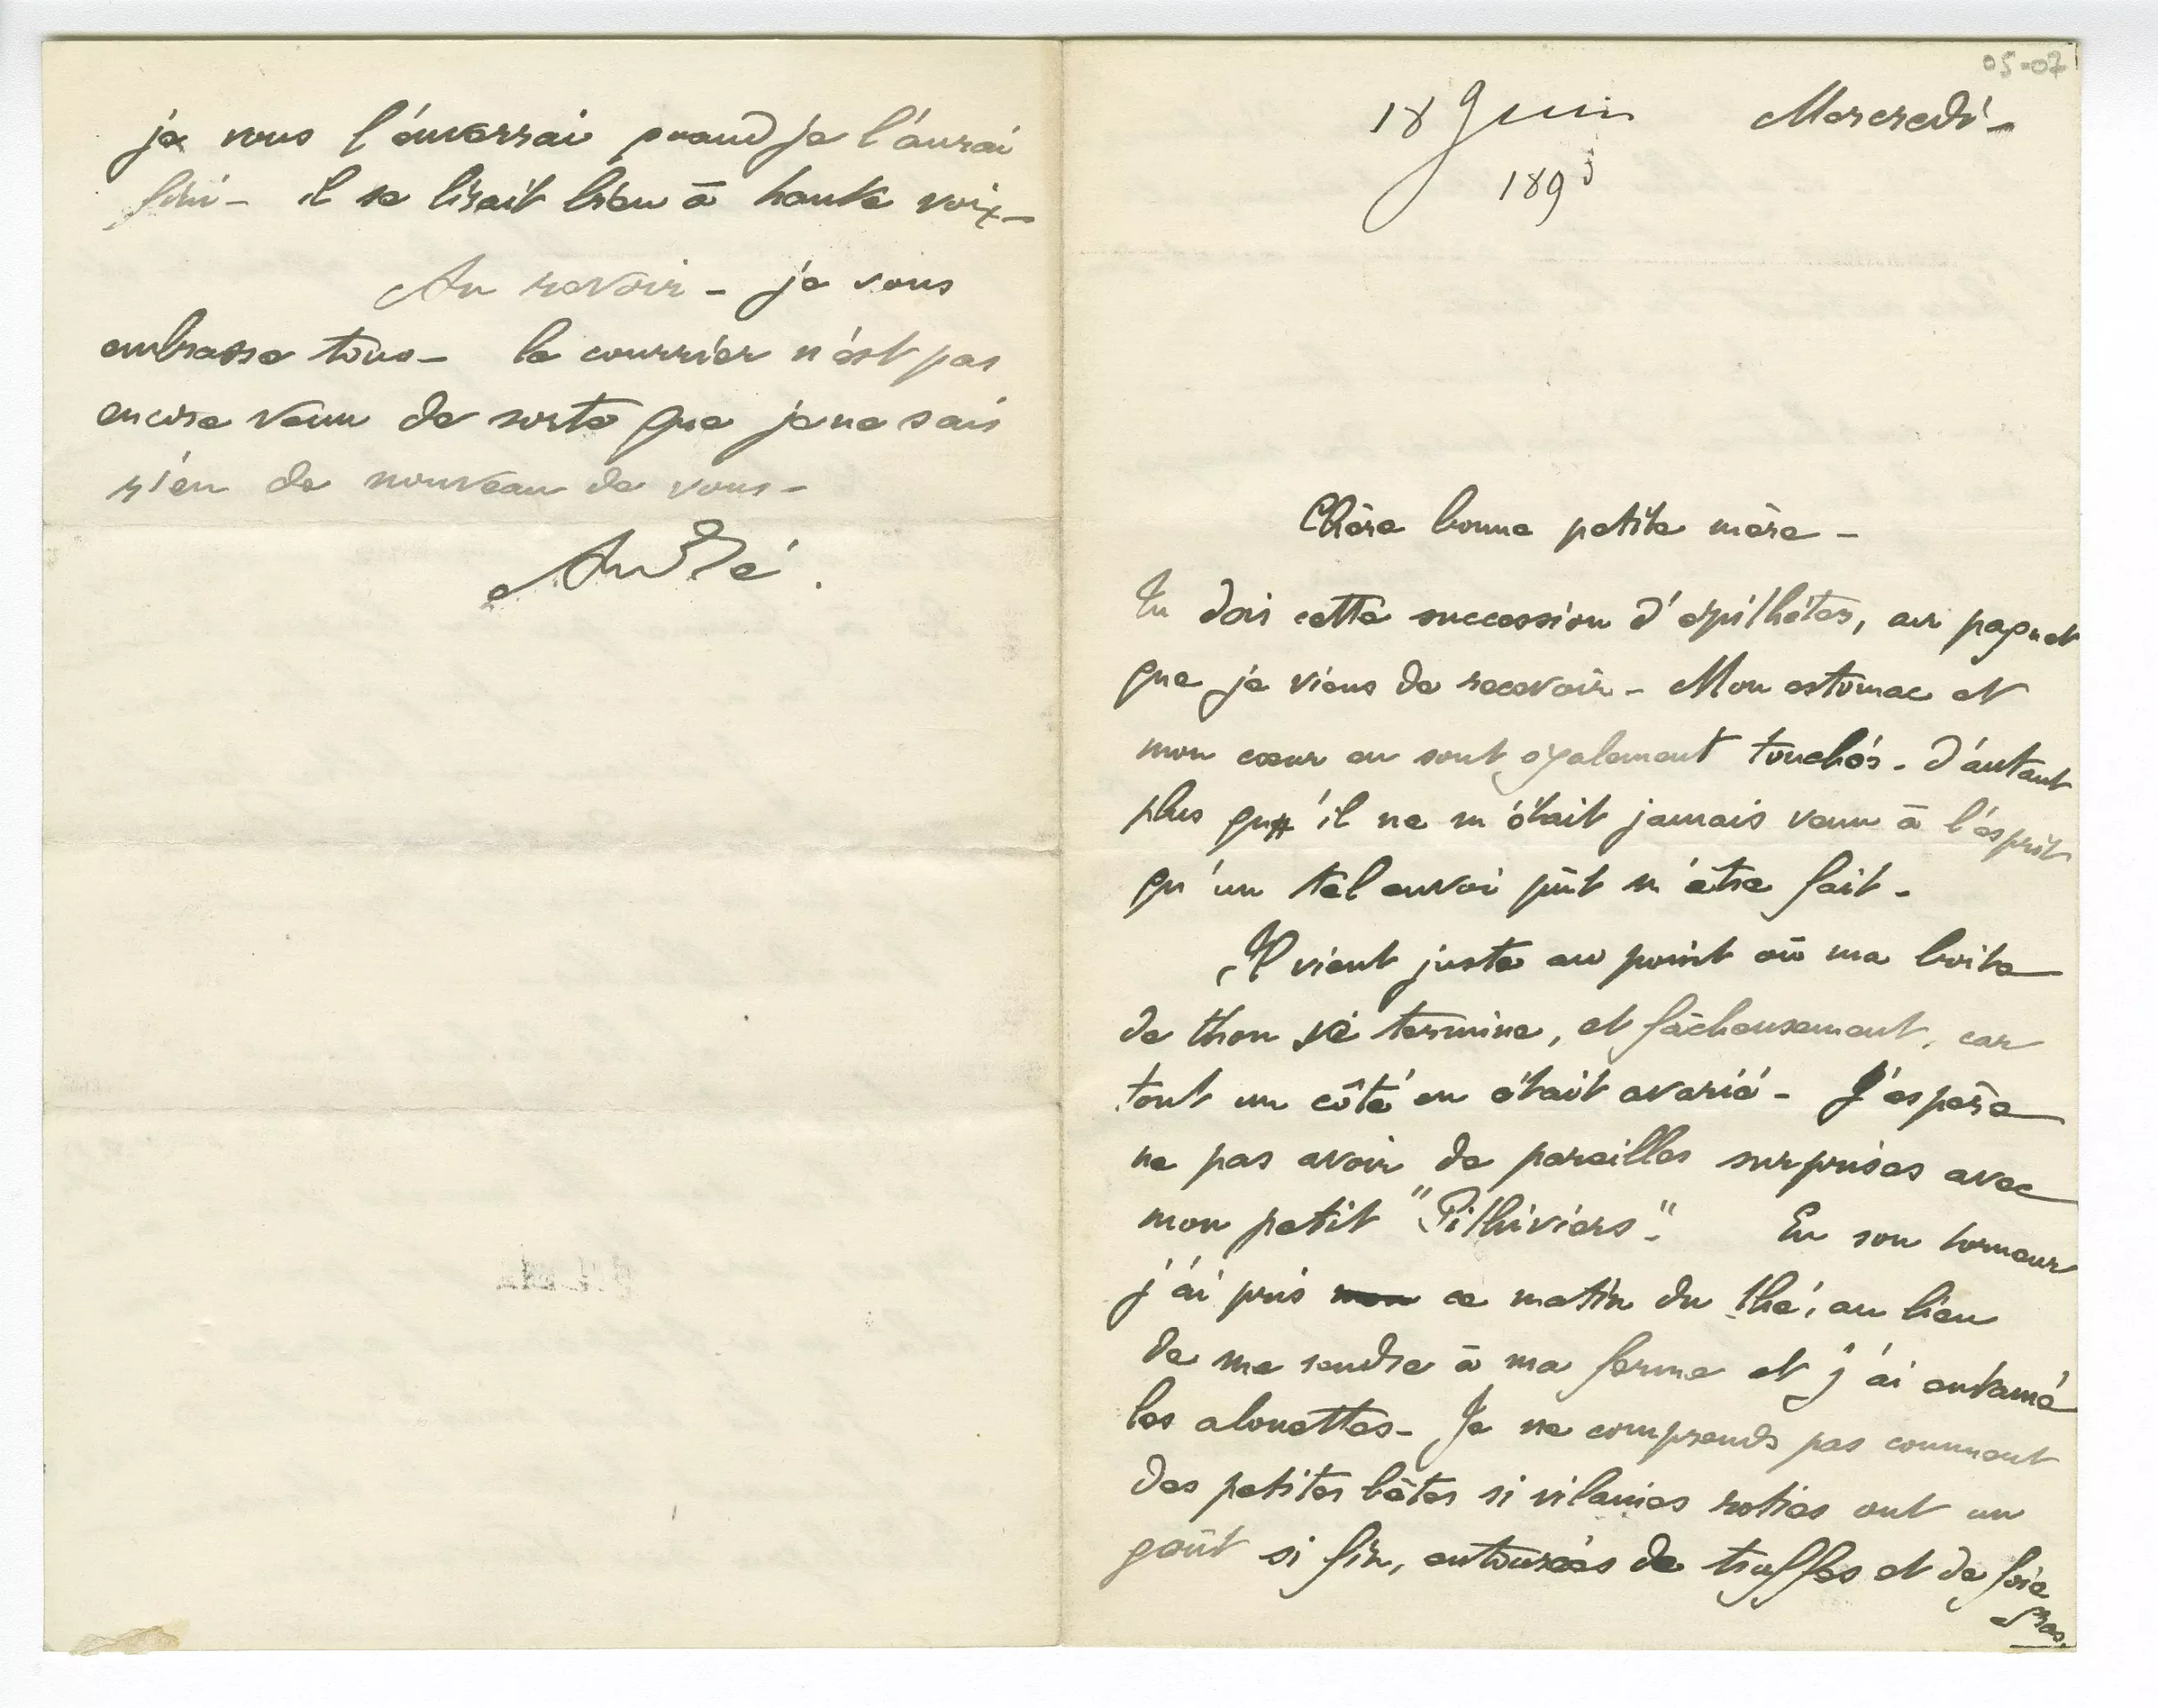 05-07
18 Juin Mercredi -
189
Chère bonne petite mère -
Tu dois cette succession d'épithètes, au paquet
que je viens de recevoir - Mon estomac et
mon cœur en sont également touchés - d'autant
plus qu'il ne m'était jamais venu à l'esprit
qu'un tel envoi pût m'être fait -
Il vient juste au point où ma boite
de thon se termine, et fâcheusement, car
tout un côté en était avarié - J'espère
ne pas avoir de pareilles surprises avec
mon petit "Pithiviers" - En son honneur
j'ai pris mon ce matin du thé, au lieu
de me rendre à ma ferme et j'ai entamé
les alouettes - Je ne comprends pas comment
des petites bêtes si vilaines roties ont un
goût si fin, entourées de truffes et de foie
gras.
je vous l'enverrai quand je l'aurai
fini - il se lirait bien à haute voix -
Au revoir - je vous
embrasse tous - le courrier n'est pas
encore venu de sorte que je ne sais
rien de nouveau de vous -
André.